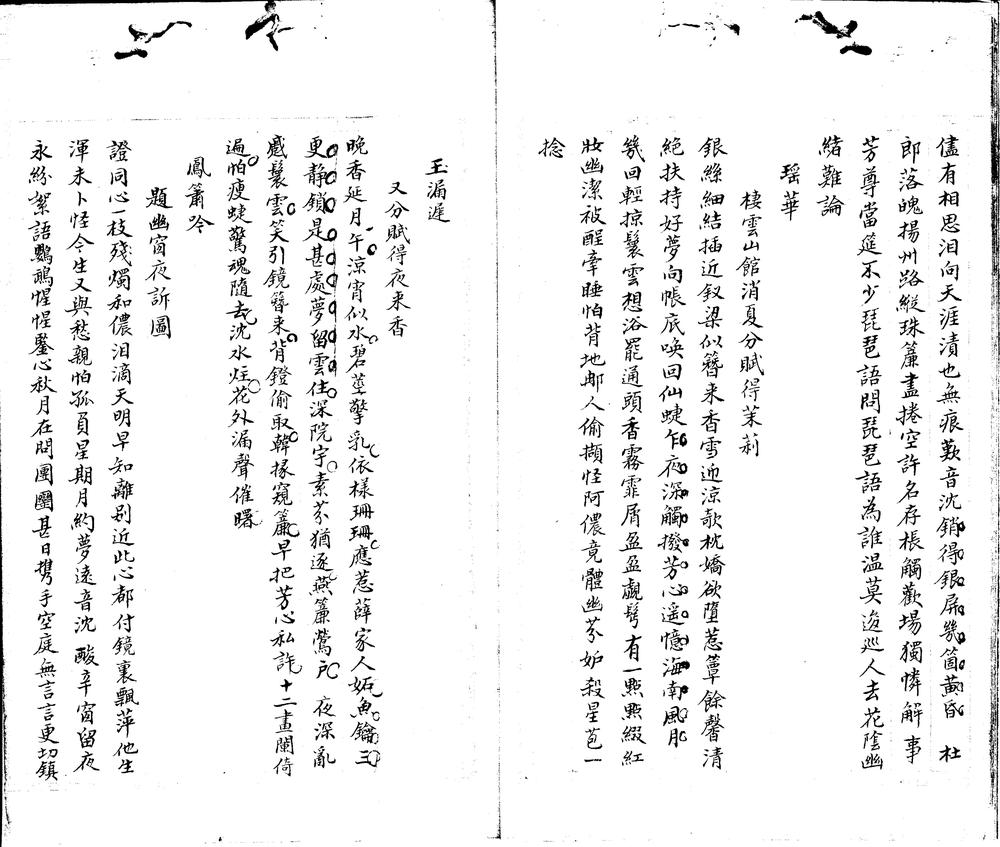 儘有相思泪向天涯漬也無痕歎音沈銷得銀屏幾箇黃昏　杜
郎落魄揚州路縱珠簾盡捲空許名存棖觸歡場獨憐解事
芳尊當筵不少琵琶語問琵琶語為誰温莫逡巡人去花陰幽
緒難論
瑶華
棲雲山館消夏分賦得茉莉
銀絲細結插近釵梁似簪来香雪迎涼欹枕嬌欲墮惹簟餘馨清
絶扶持好夢向帳底喚回仙蜨乍夜深觸撥芳心遥憶海南風月
幾回輕掠鬟雲想浴罷通頭香霧霏屑盈盈靚髩有一點點綴紅
妝幽潔被酲牽睡怕背地邮人偷擷怪阿儂竟體幽芬妒殺星苞一
捻
玉漏遲
又分賦得夜来香
晚香延月午涼宵似水碧莖擎乳依樣珊珊應惹薛家人妬魚鑰三
更静鎖是甚處夢留雲住深院宇素芬猶逐燕簾鶯戶　夜深亂
慼鬟雲笑引鏡簪来背鐙偷取韓掾窺簾早把芳心私許十二畫闌倚
遍怕瘦蜨驚魂隨去沈水炷花外漏聲催曙
鳳簫吟
題幽窗夜訴圖
證同心一枝殘燭和儂泪滴天明早知離别近此心都付鏡裏飄萍他生
渾未卜怪今生又與愁親怕孤負星期月約夢遠音沈　酸辛窗留夜
永紛絮語鸚鵡惺惺鑿心秋月在問團圞甚日携手空庭無言言更切鎮